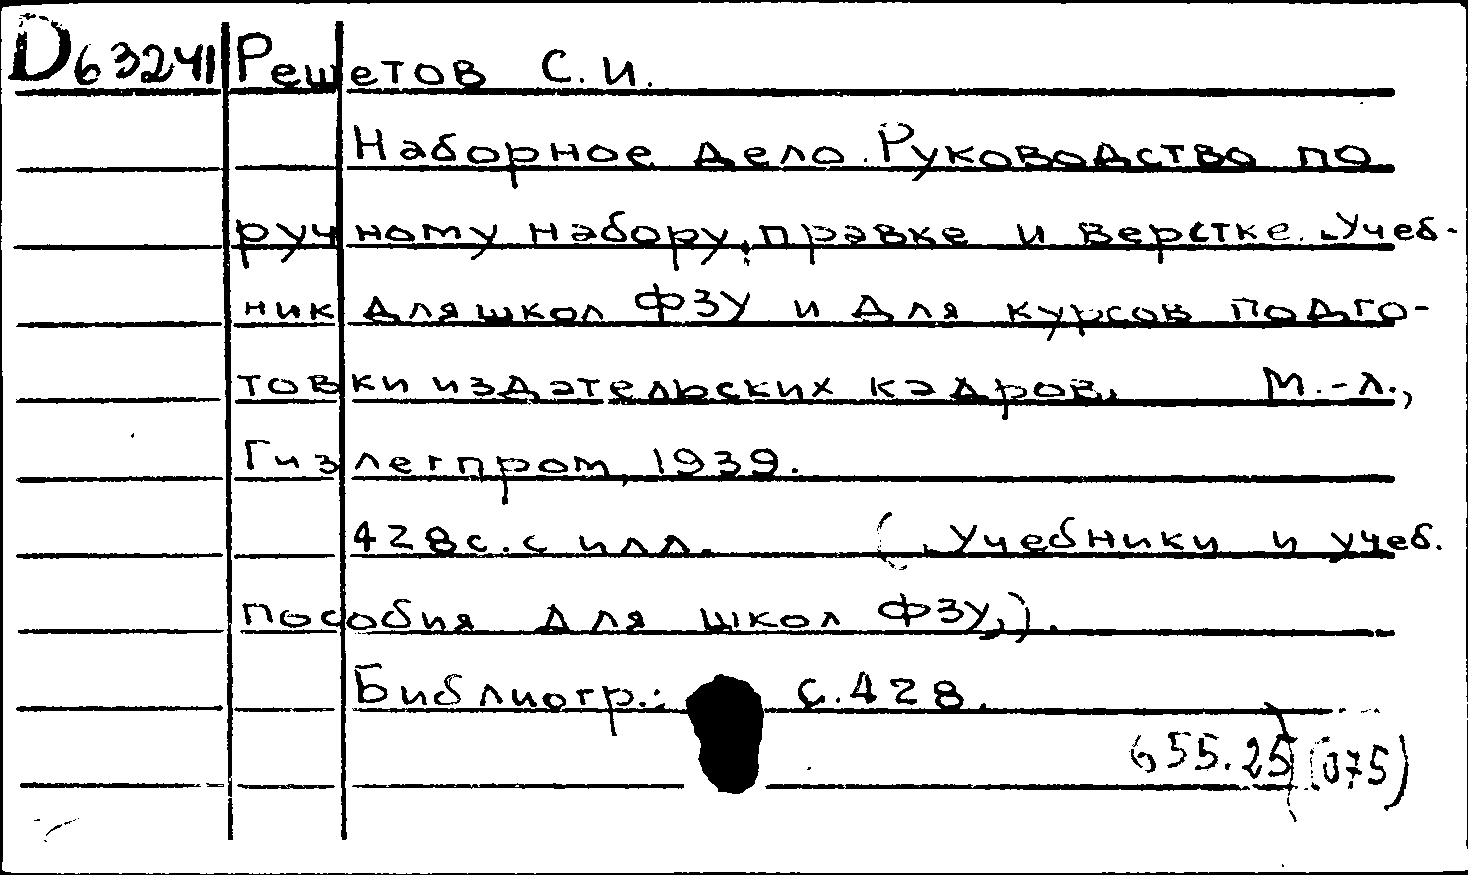 D63241 Решетов С.И.
Наборное дело. Руководство по
ручному набору, правке и верстке. Учеб-
ник для школ ФЗУ и для курсов подго-
товки издательских кадров. М.-Л.,
Гизлегпром, 1939.
428с. с илл. (Учебники и учеб.
пособия для школ ФЗУ,).
Библиогр.: с.428.
655.25(075)